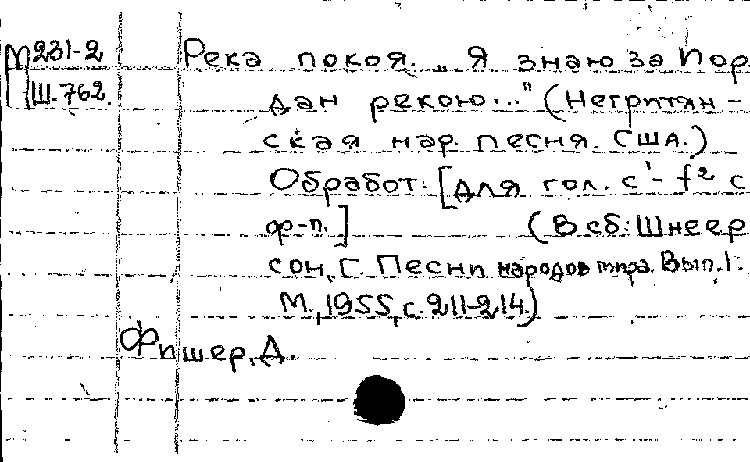 М 231-2 Река покоя. „Я знаю за Иор
Ш. 762. дан рекою..." (Негритян-
ская нар. песня. США.)
Обработ. [для гол. c¹-f² с
ф-п.] (В сб: Шнеер
сон, Г. Песни народов мира. Вып. 1.
М., 1955, с. 211-214.)
Фишер, Д.